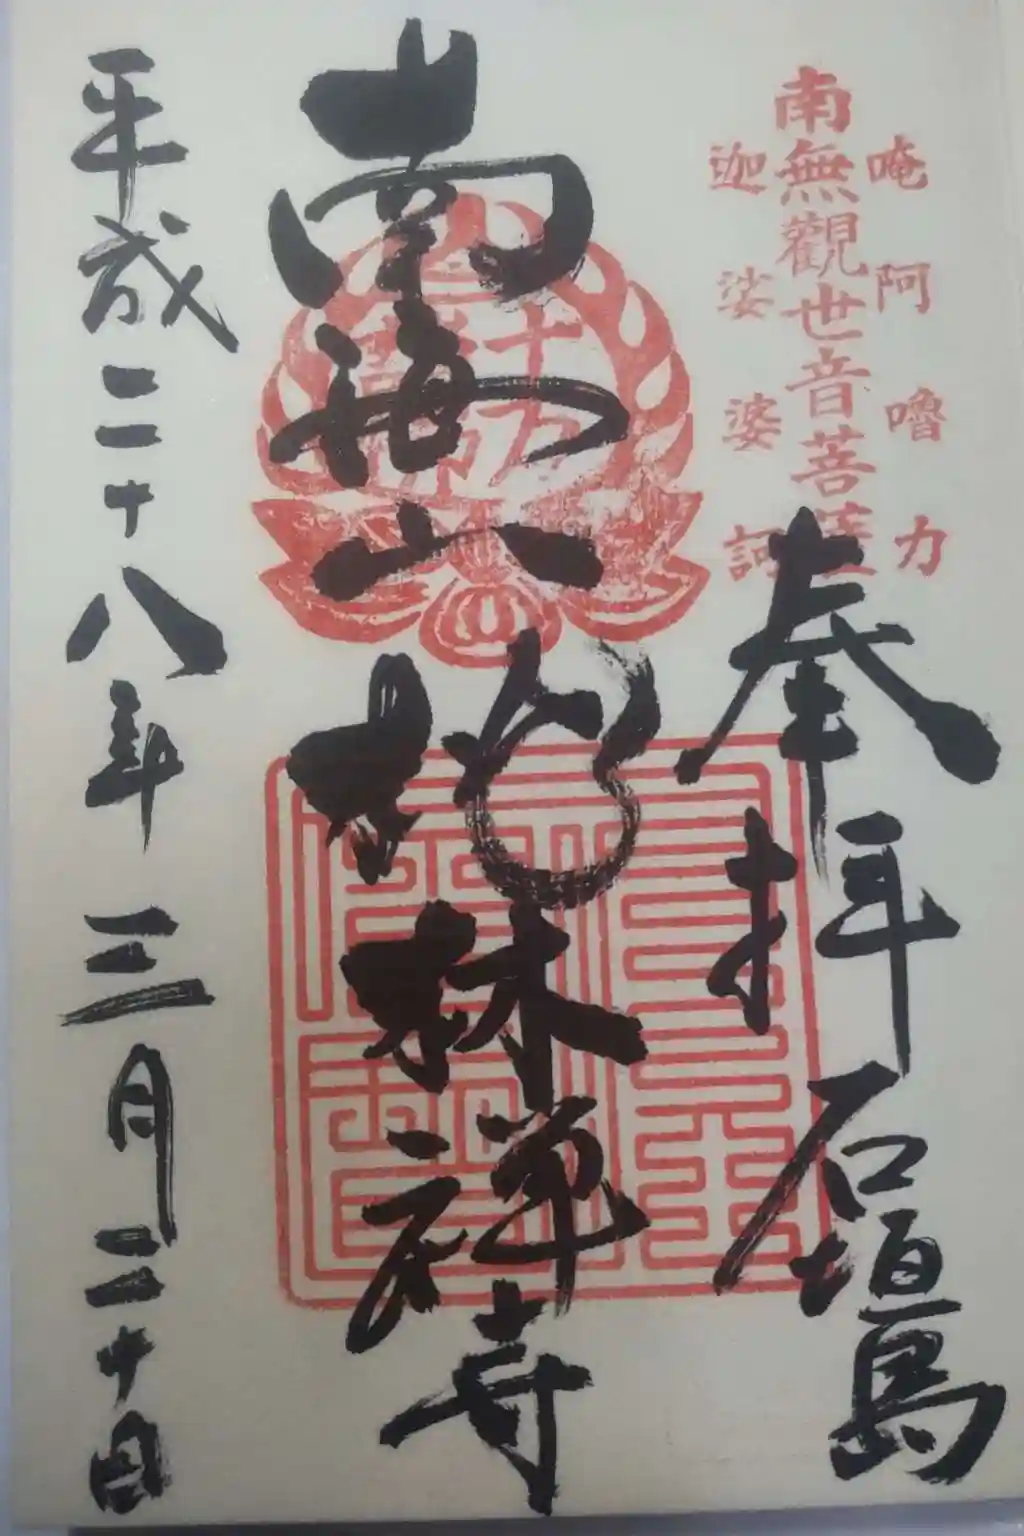 唵阿嚕力
南無觀世音菩薩
迦娑婆訶
奉拝 石垣島
南海山桃林禅寺
平成二十八年三月二十日